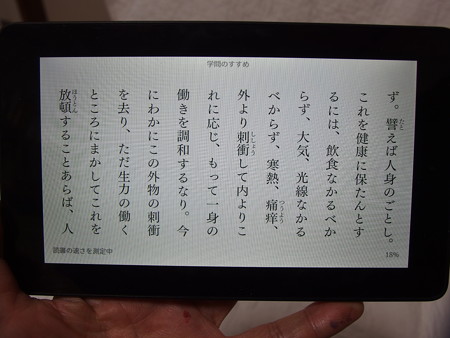 学問のすすめ
ず。譬えば人身のごとし。
これを健康に保たんとす
るには、飲食なかるべか
らず、大気、光線なかる
べからず、寒熱、痛痒、
外より刺衝して内よりこ
れに応じ、もって一身の
働きを調和するなり。今
にわかにこの外物の刺衝
を去り、ただ生力の働く
ところにまかしてこれを
放頓することあらば、人
読書の速さを測定中
18%